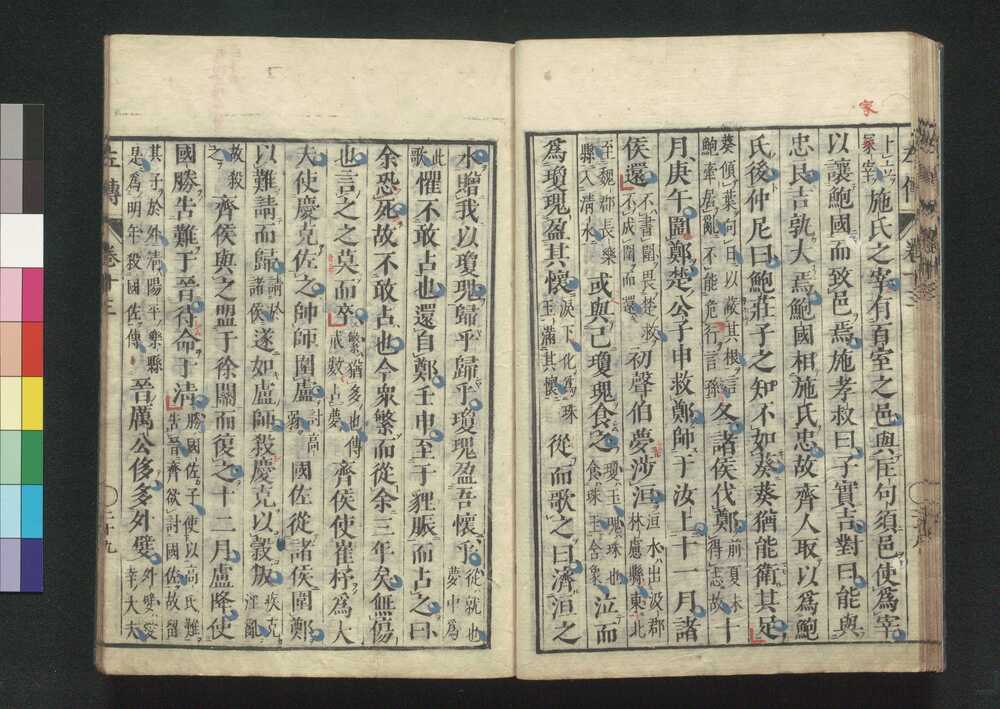 家
卜立冢宰施氏之宰有百室之邑與匡句須邑使爲宰
以讓鮑國而致邑焉施孝叔曰子實吉對曰能與
忠良吉孰大焉鮑國相施氏忠故齊人取以爲鮑
氏後仲尼曰鮑莊子之知不如葵葵猶能衛其足
葵傾葉向日以蔽其根言鮑牽居亂不能危行言孫冬諸侯伐鄭前夏未得志故十
月庚午圍鄭楚公子申救鄭師于汝上十一月諸
侯還不書圍畏楚救不成圍而還初聲伯夢涉洹洹水出汲郡林慮縣東北
至魏郡長樂縣入清水或與己瓊瑰食之瓊玉瑰珠也食珠玉含象泣而
爲瓊瑰盈其懷淚下化爲珠玉滿其懷從而歌之曰濟洹之
水贈我以瓊瑰歸乎歸乎瓊瑰盈吾懷乎從就也夢中爲
此歌懼不敢占也還自鄭壬申至于貍脤而占之曰
余恐死故不敢占也今衆繁而從余三年矣無傷
也言之之莫而卒繁猶多也傳戒數占夢齊侯使崔杼爲大
夫使慶克佐之帥師圍盧討高弱國佐從諸侯圍鄭
以難請而歸請於諸侯遂如盧師殺慶克以穀叛疾克淫亂
故殺之齊侯與之盟于徐關而復之十二月盧降使
國勝告難于晉待命于清勝國佐子使以高氏難告晉齊欲討國佐故留
其子於外清陽平樂縣是爲明年殺國佐傳晉厲公侈多外嬖外嬖愛幸大夫
左傳 卷十三 二十九